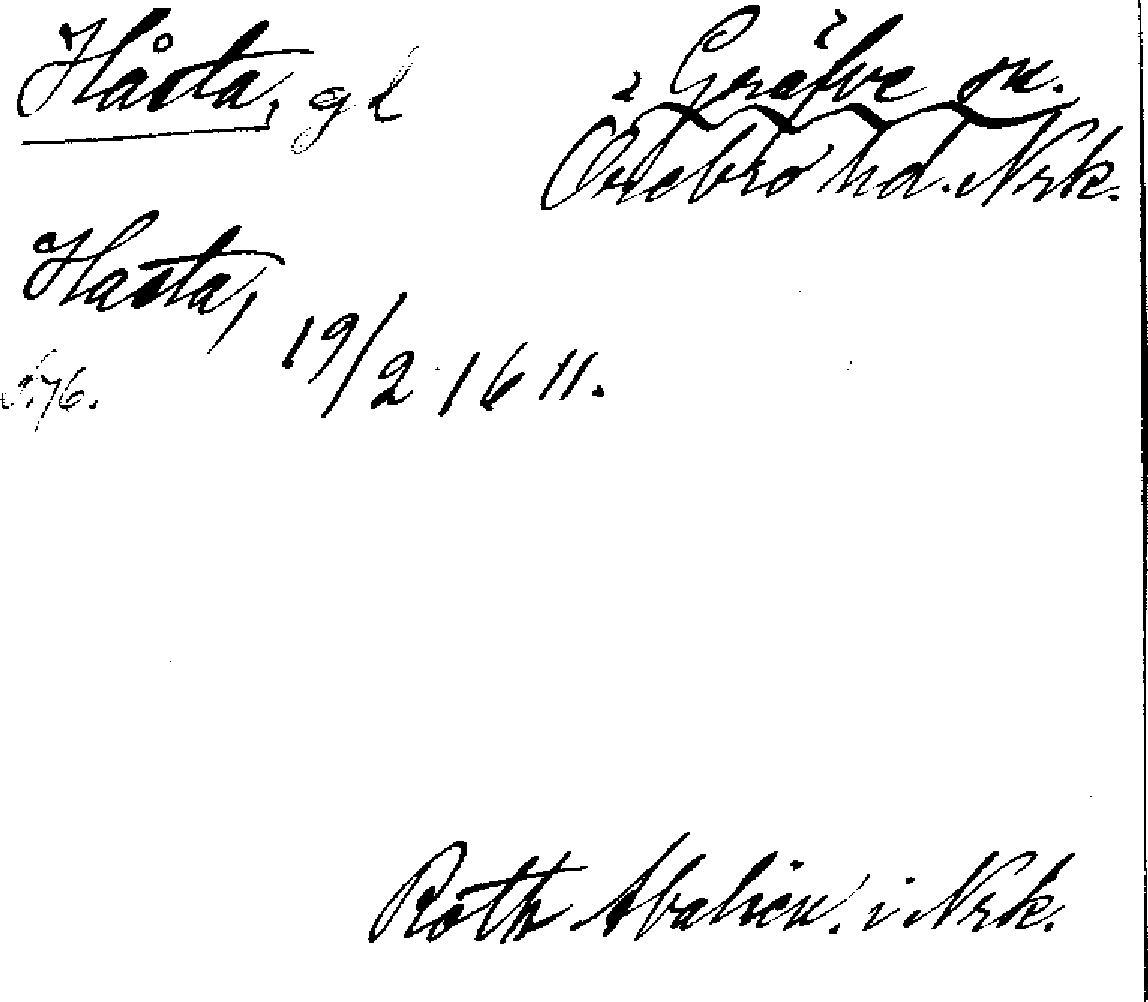 Håsta, gd
i Gräfve sn.
Örebro hd. Nrk.
Hasta,
19/2 1611.
S. 76.
Roth i Nrk.